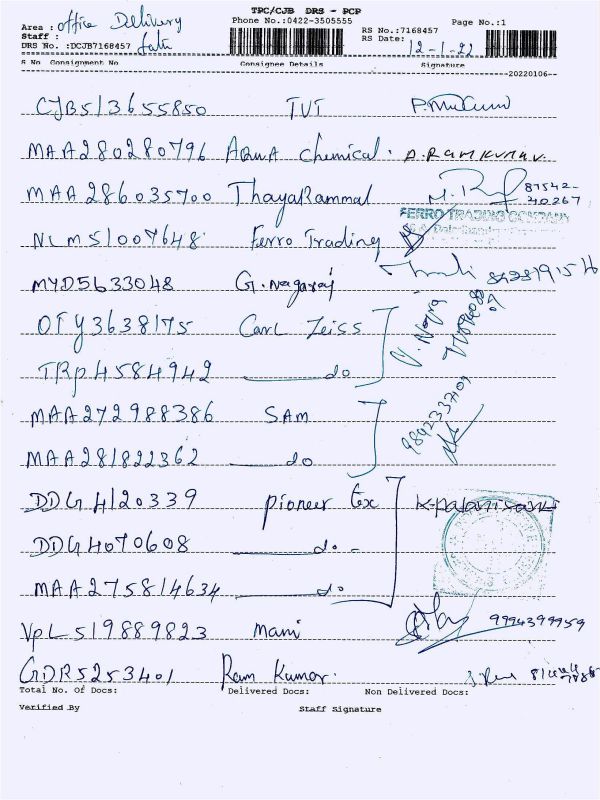 TPC/CJB DRS - PCP
Area : office Delivery Phone No.:0422-3505555 Page No.:1
Staff : RS No.:7168457
DRS No. :DCJB7168457 RS Date: 12-1-22
S No Consignment No Consignee Details Signature
20220106
CJB513655850 TVT
MAA280280796 AQUA Chemical. P. RAMKUMAR.
MAA286035700 ThayaRammal 87542-
40267
FERRO TRADING COMPANY
NLM51007648 Ferro Trading
MYD5633048 G. Nagaraj
OTY3638175 Carl Zeiss
TRP4584942 do
MAA272988386 SAM
MAA281822362 do
DDG4120339 pioneer Tex K. palanisami
DDG4070608 do -
MAA275814634 do
VPL519889823 mani 9994399959
GDR5253401 Ram Kumar.
Total No. Of Docs: Delivered Docs: Non Delivered Docs:
Verified By Staff Signature